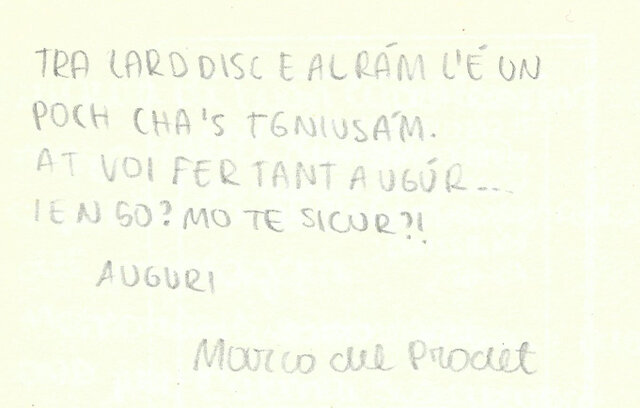 TRA LARDDISC E AL RÁM L'É UN
POCH CHA'S TGNIUSÁM.
AT VOI FER TANT AUGÚR...
IEN 60? MO TE SICUR?!
AUGURI
Marco del Prodet